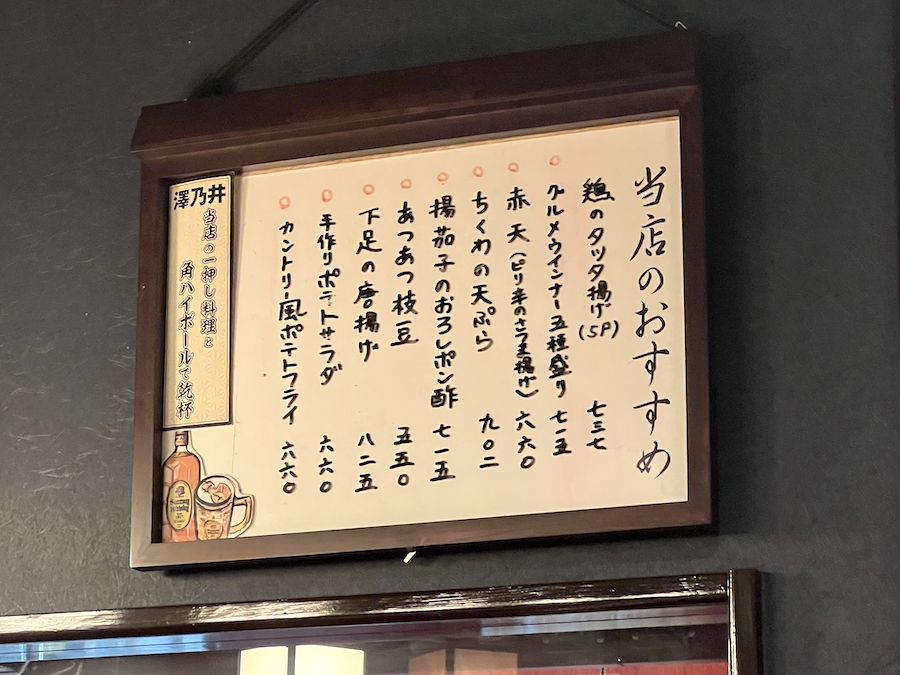 当店のおすすめ
鶏のタツタ揚げ(5P) 七三七
グルメウインナー五種盛り 七一五
赤天(ピリ辛のさつま揚げ) 六六〇
ちくわの天ぷら 九〇二
揚茄子のおろしポン酢 七一五
あつあつ枝豆 五五〇
下足の唐揚げ 八二五
手作りポテトサラダ 六六〇
カントリー風ポテトフライ 六六〇
澤乃井
当店の一押し料理と
角ハイボールで乾杯